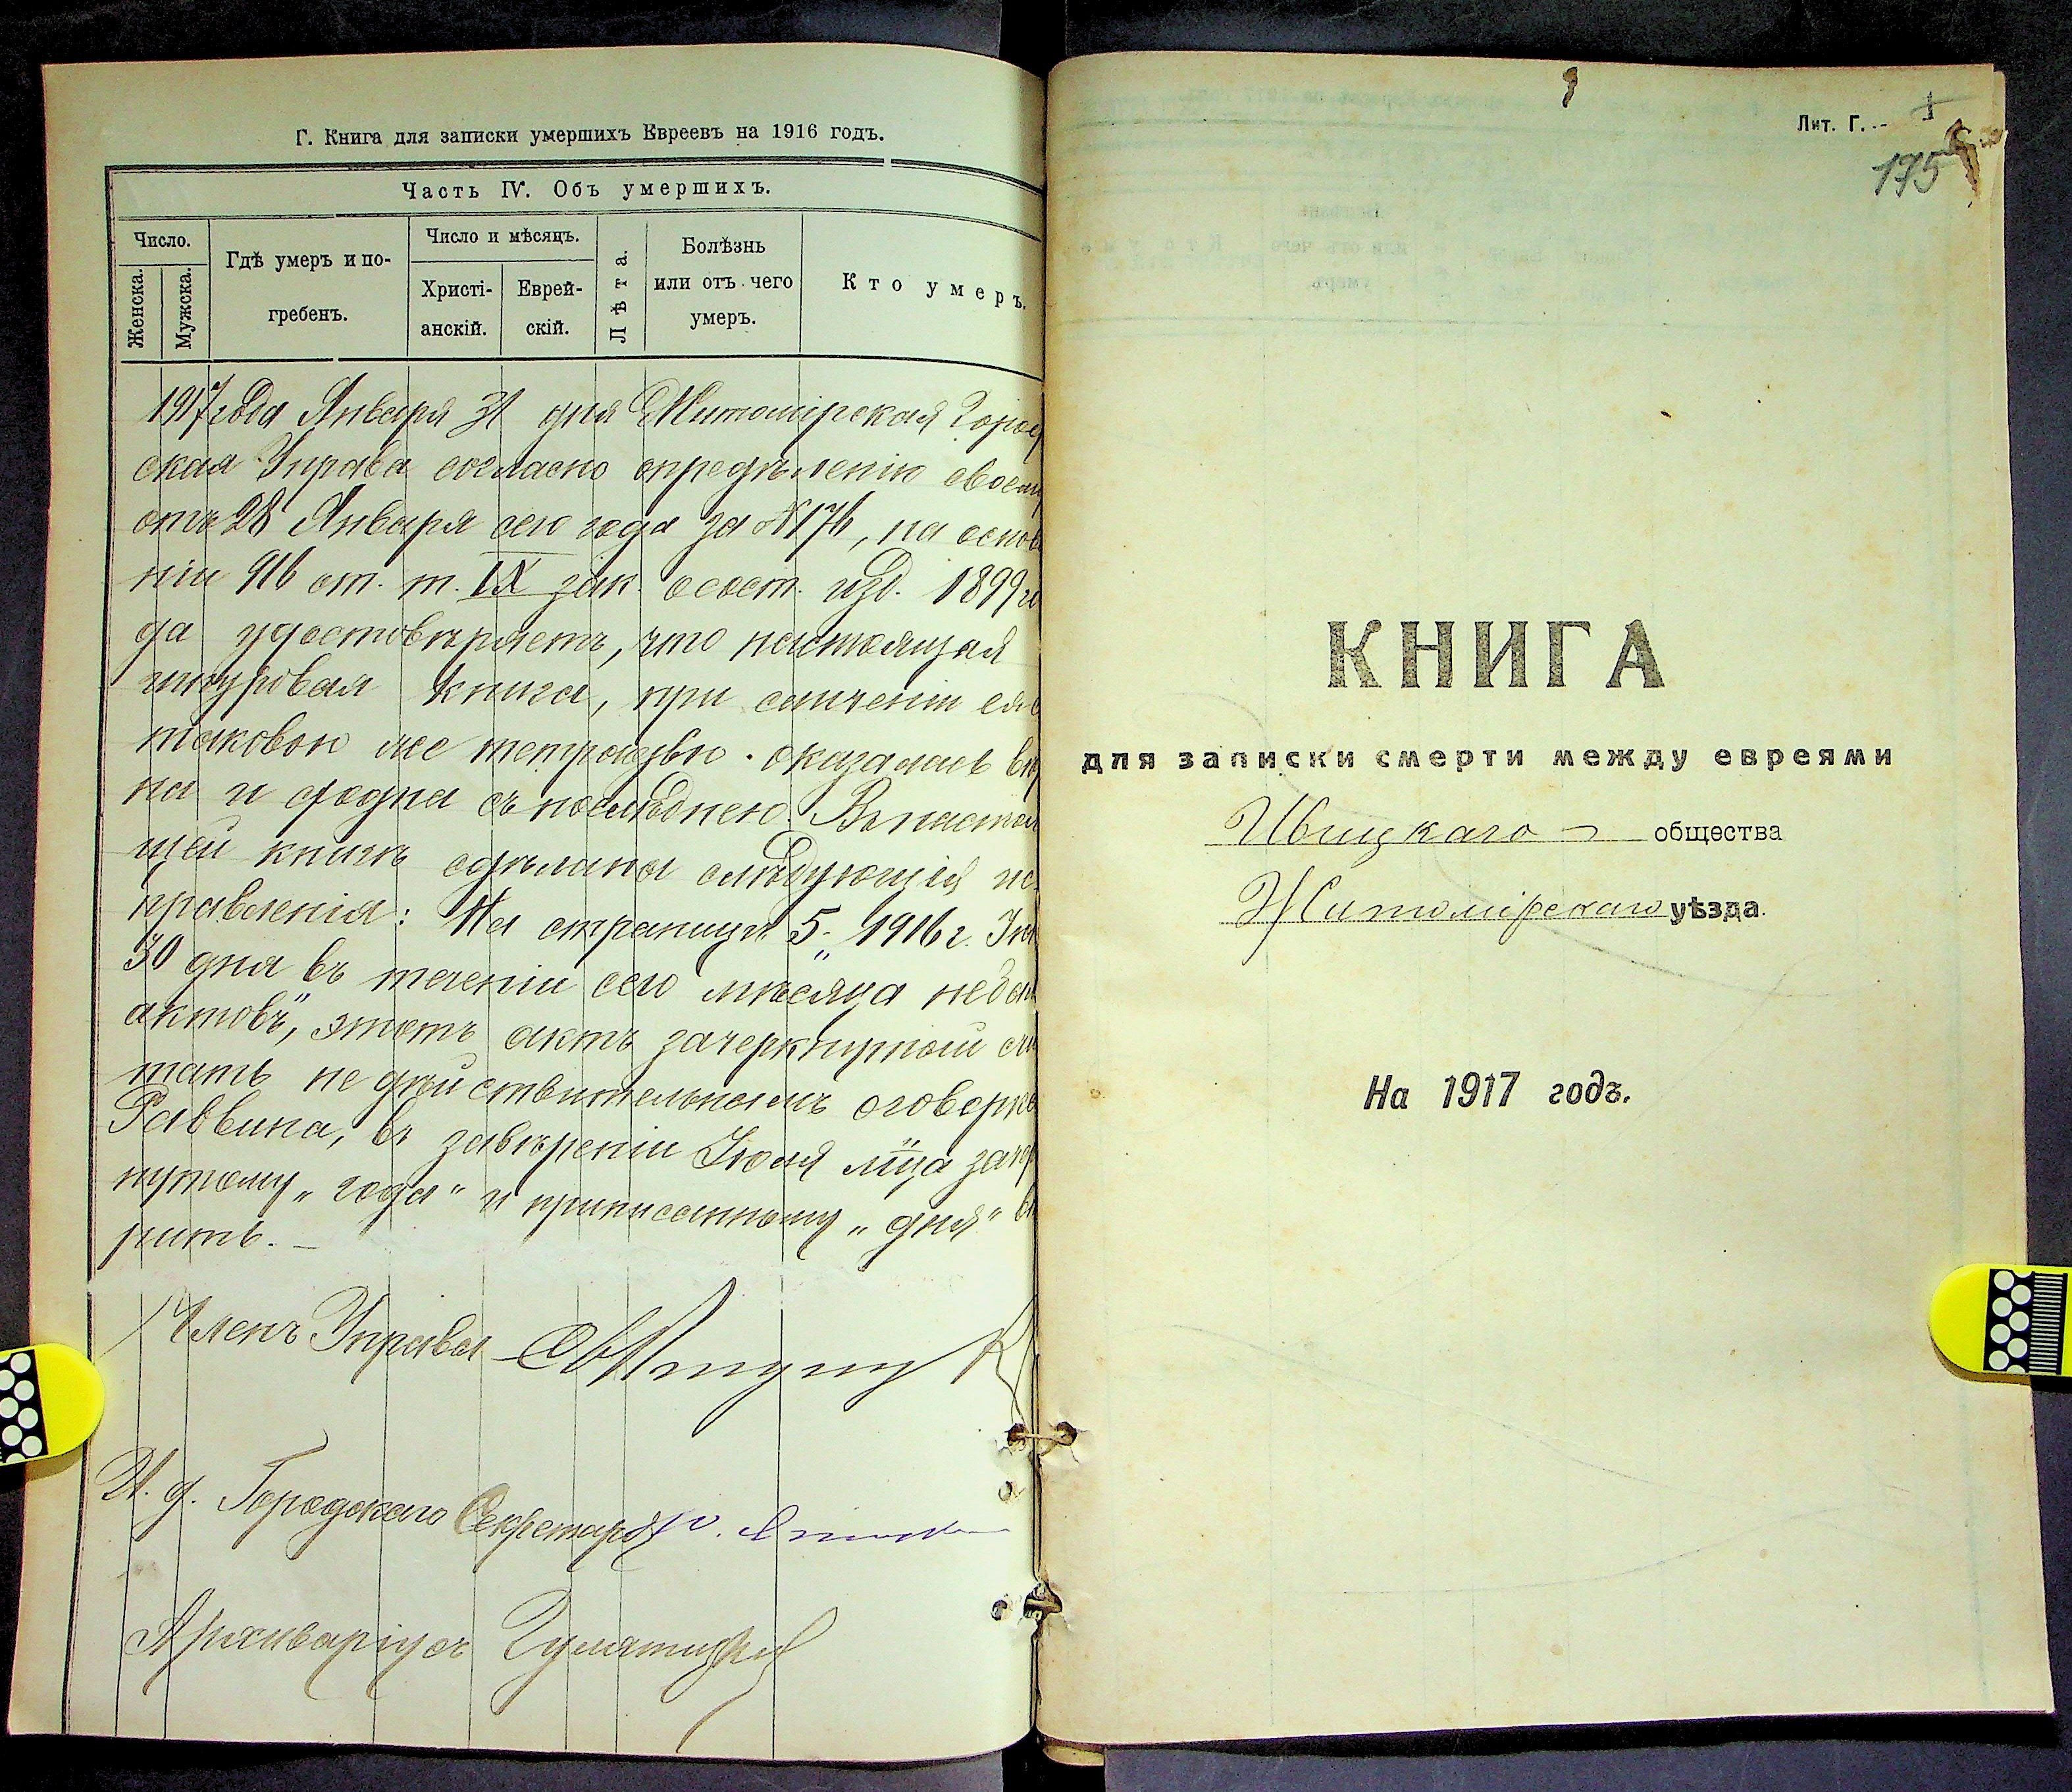 Г. Книга для записки умершихъ Евреевъ на 1916 годъ.
Часть IV. Объ умершихъ.
Число.
Женска.
Мужска.
Гдѣ умеръ и по-
гребенъ.
Число и мѣсяцъ.
Христі-
анскій.
Еврей-
скій.
Лѣта.
Болѣзнь
или отъ чего
умеръ.
Кто умеръ.
1917 года Января 31 дня Житомірская Город
ская Управа согласно опредѣленію своему
отъ 28 Января сего года за № 176, на основ
ніи 916 ст. т. IX зак. о сост. изд. 1899 го
да удостовѣряетъ, что настоящая
шнуровая книга, при сличеніи ея с
таковою же тетрадью оказалась вѣр
на и сходна съ послѣднею. Въ настоя
щей книгѣ сдѣланы слѣдующія ис
правленія: На страницѣ 5 „1916 г. Іюн
30 дня въ теченіи сего мѣсяца не был
актовъ", этотъ актъ зачеркнутый счи
тать не дѣйствительнымъ оговорк
Раввина, въ завѣреніи Іюля м-ца зачер
кнутому „года" и приписанному „дня" вѣ
рить. —
Членъ Управы
И. д. Городского Секретаря
Архиваріусъ
Лит. Г.
1
175
КНИГА
для записки смерти между евреями
Ивницкаго общества
Житомірскаго уѣзда.
На 1917 годъ.